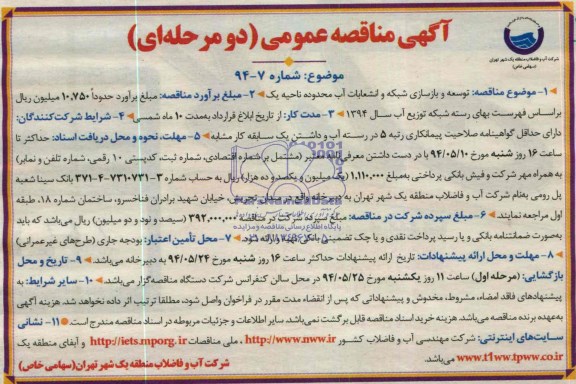 آگهی مناقصه عمومی (دو مرحله‌ای)
شرکت آب و فاضلاب منطقه یک شهر تهران
(سهامی خاص)
موضوع: شماره ۷-۹۴
۱- موضوع مناقصه: توسعه و بازسازی شبکه و انشعابات آب محدوده ناحیه یک ۲- مبلغ برآورد مناقصه: مبلغ برآورد حدوداً ۱۰,۷۵۰ میلیون ریال
براساس فهرست بهای رسته شبکه توزیع آب سال ۱۳۹۴ ۳- مدت کار: از تاریخ ابلاغ قرارداد به‌مدت ۱۰ ماه شمسی ۴- شرایط شرکت‌کنندگان:
دارای حداقل گواهینامه صلاحیت پیمانکاری رتبه ۵ در رسته آب و داشتن یک سابقه کار مشابه ۵- مهلت، نحوه و محل دریافت اسناد: حداکثر تا
ساعت ۱۶ روز شنبه مورخ ۹۴/۰۵/۱۰ با در دست داشتن معرفی‌نامه معتبر (مشتمل بر شماره اقتصادی، شماره ثبت، کدپستی ۱۰ رقمی، شماره تلفن و نمابر)
به همراه مهر شرکت و فیش بانکی پرداختی به‌مبلغ ۱,۱۱۰,۰۰۰ (یک میلیون و یکصد و ده هزار) ریال به حساب شماره ۳-۷۳۱۰۷۳۱-۴-۳۷۱ بانک سینا شعبه
پل رومی به‌نام شرکت آب و فاضلاب منطقه یک شهر تهران به واقع در میدان تجریش، خیابان شهید برادران فناخسرو، ساختمان شماره ۱۸، طبقه
اول مراجعه نمایند. ۶- مبلغ سپرده شرکت در مناقصه: مبلغ سپرده شرکت در مناقصه ۳۹۲,۰۰۰,۰۰۰ (سیصد و نود و دو میلیون) ریال می‌باشد که باید
به‌صورت ضمانتنامه بانکی و یا رسید پرداخت نقدی و یا چک تضمینی بانکی تهیه و ارائه شود. ۷- محل تأمین اعتبار: بودجه جاری (طرح‌های غیرعمرانی)
۸- مهلت و محل ارائه پیشنهادات: تاریخ ارائه پیشنهادات حداکثر ساعت ۱۶ روز شنبه مورخ ۹۴/۰۵/۲۴ به دبیرخانه می‌باشد. ۹- تاریخ و محل
بازگشایی: (مرحله اول) ساعت ۱۱ روز یکشنبه مورخ ۹۴/۰۵/۲۵ در محل سالن کنفرانس شرکت دستگاه مناقصه‌گزار می‌باشد. ۱۰- سایر شرایط: به
پیشنهادهای فاقد امضاء، مشروط، مخدوش و پیشنهاداتی که پس از انقضاء مدت مقرر در فراخوان واصل شود، مطلقا ترتیب اثر داده نخواهد شد. هزینه آگهی
به‌عهده برنده مناقصه می‌باشد. هزینه خرید اسناد مناقصه قابل برگشت نمی‌باشد. سایر اطلاعات و جزئیات مربوطه در اسناد مناقصه مندرج است. ۱۱- نشانی
سایت‌های اینترنتی: شرکت مهندسی آب و فاضلاب کشور http://www.nww.ir ، ملی مناقصات http://iets.mporg.ir و آبفای منطقه یک
www.t1ww.tpww.co.ir می‌باشد.
شرکت آب و فاضلاب منطقه یک شهر تهران (سهامی خاص)